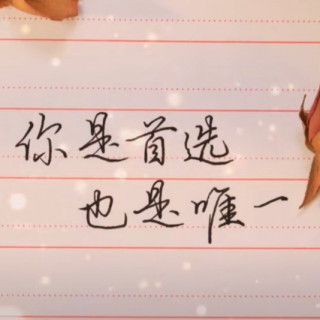 你是首选
也是唯一